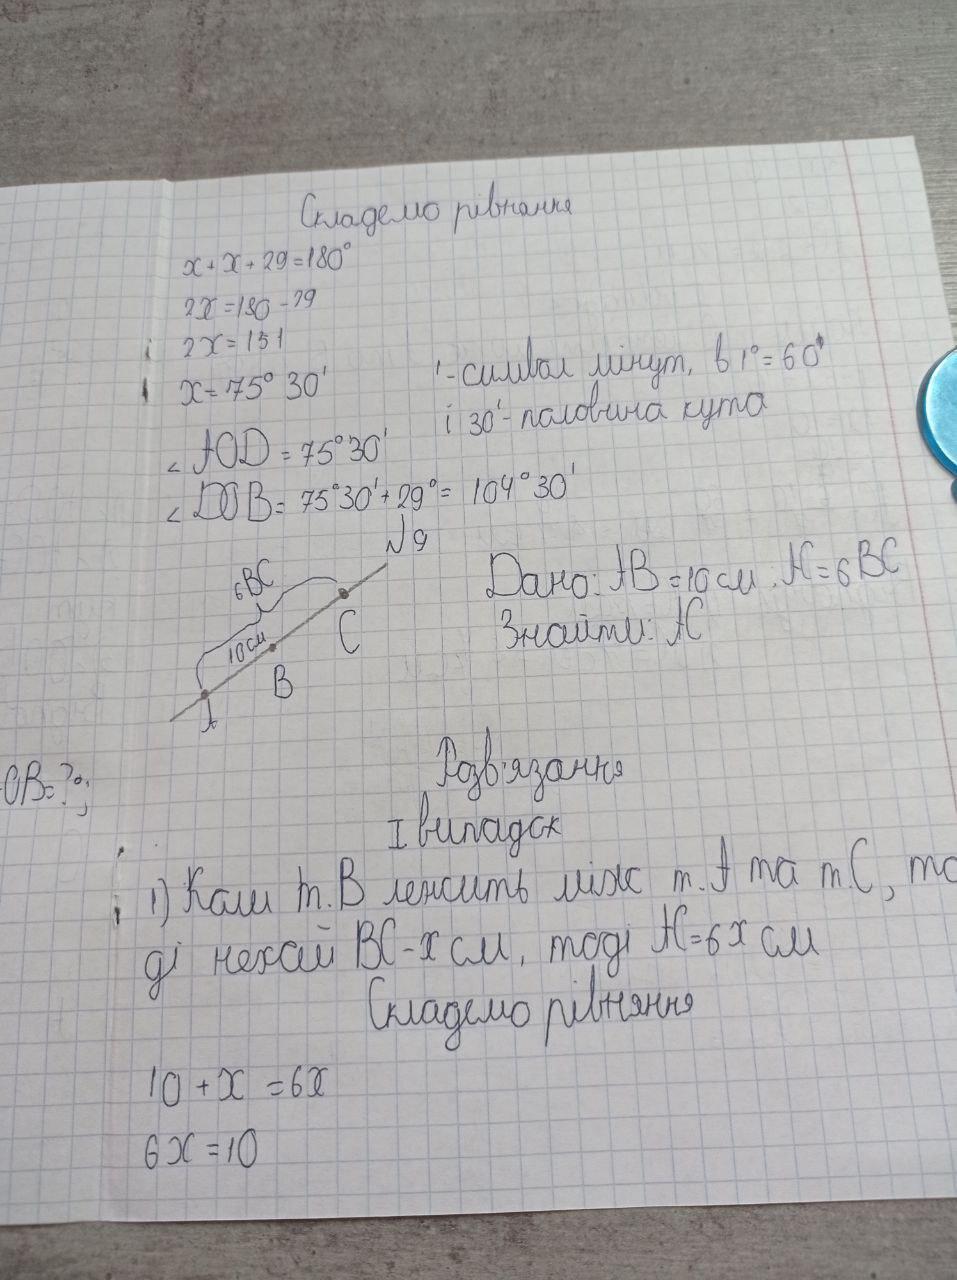 Складемо рівняння
x + x + 29 = 180°
2x = 180 - 29
2x = 151
x = 75° 30'
' - символ мінут, в 1° = 60'
і 30' - половина кута
∠AOD = 75°30'
∠DOB = 75°30' + 29° = 104°30'
№9
6BC
10 см
A
B
C
Дано: AB = 10 см. AC = 6 BC
Знайти: AC
OB = ?°;
Розв'язання
I випадок
1) Коли т. B лежить між т. A та т. C, то
ді нехай BC - x см, тоді AC = 6x см
Складемо рівняння
10 + x = 6x
6x = 10